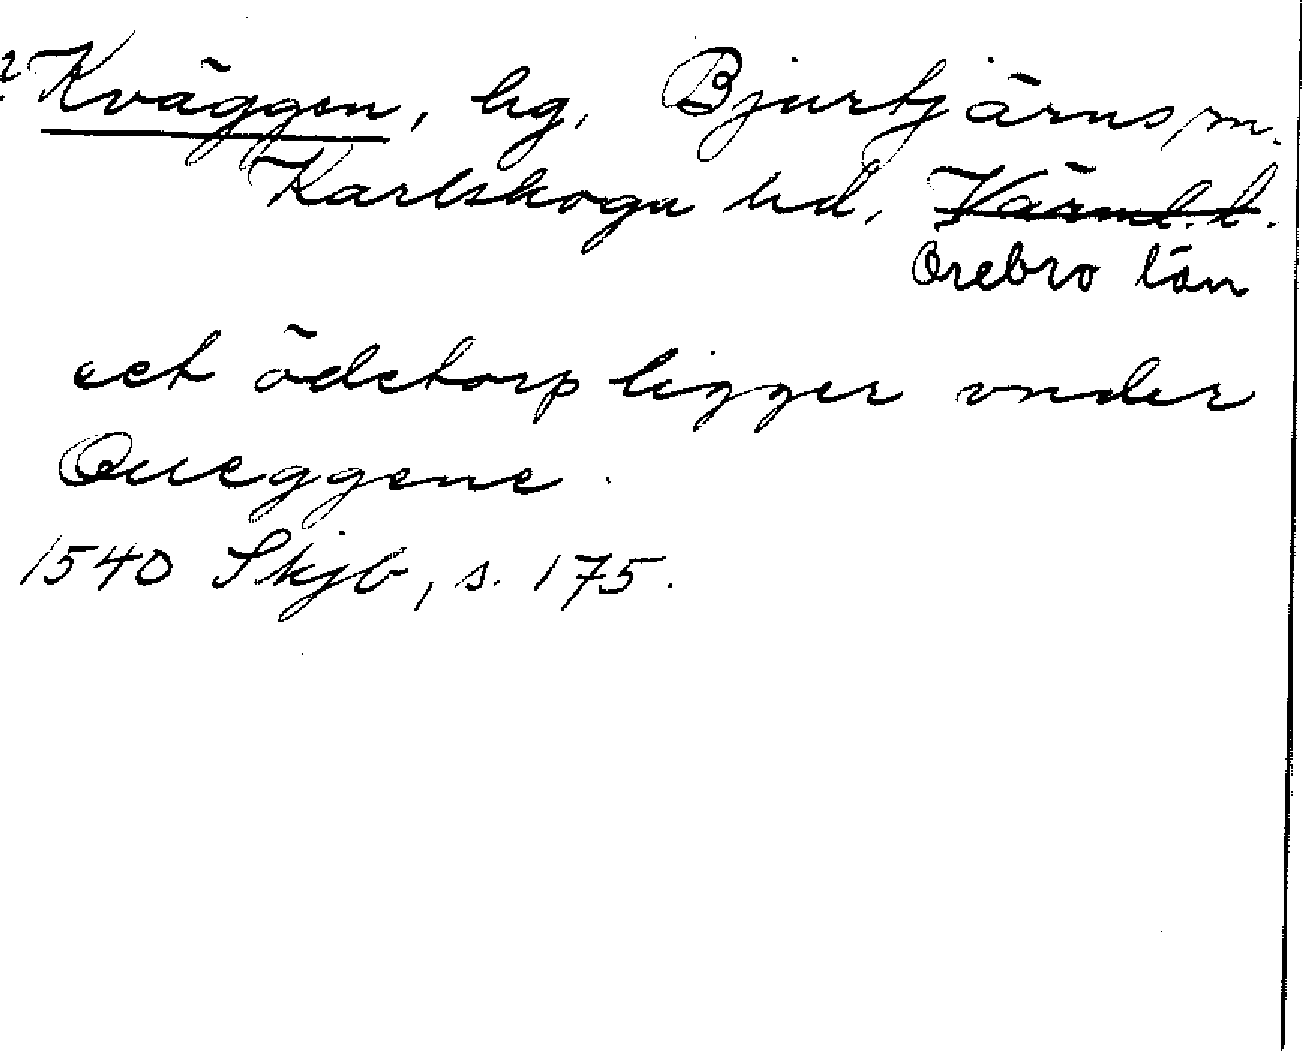 ? Kväggen, hg, Bjurtjärns sn.
Karlskoga hd, Värml. l.
Örebro län
eet ödetorp ligger vnder
Queggene.
1540 Skjb, s. 175.